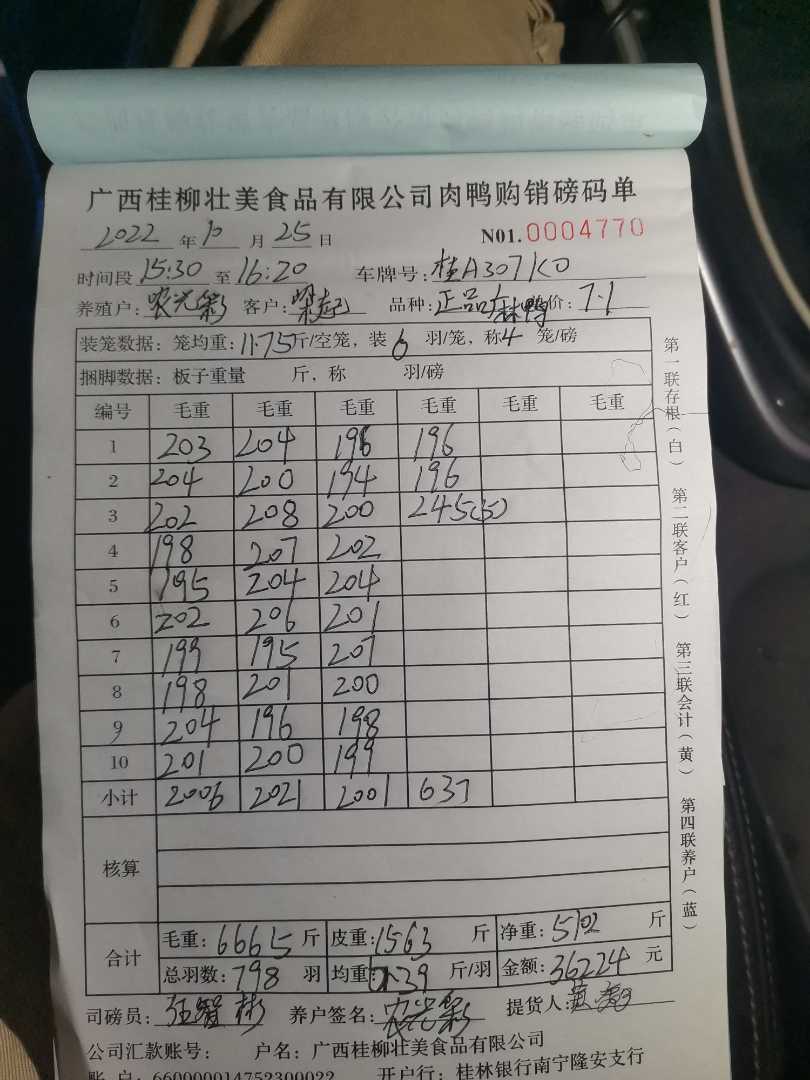 广西桂柳壮美食品有限公司肉鸭购销磅码单
2022 年 10 月 25 日 N01.0004770
时间段 15:30 至 16:20 车牌号：桂A307K0
养殖户：农光彩 客户：梁起 品种：正品 林鸭 价：7.1
装笼数据：笼均重：11.75斤/空笼，装 6 羽/笼，称 4 笼/磅
捆脚数据：板子重量 斤，称 羽/磅
编号 毛重 毛重 毛重 毛重 毛重 毛重
1 203 204 196 196
2 204 200 194 196
3 202 208 200 245(5)
4 198 207 202
5 195 204 204
6 202 206 201
7 199 195 207
8 198 201 200
9 204 196 198
10 201 200 199
小计 2006 2021 2001 637
核算
合计 毛重：6665 斤 皮重：1563 斤 净重：5102 斤
总羽数：798 羽 均重：6.39 斤/羽 金额：36224 元
司磅员： 养户签名：农光彩 提货人：
公司汇款账号： 户名：广西桂柳壮美食品有限公司
账 户：660000014752300022 开户行：桂林银行南宁隆安支行
第一联存根（白） 第二联客户（红） 第三联会计（黄） 第四联养户（蓝）